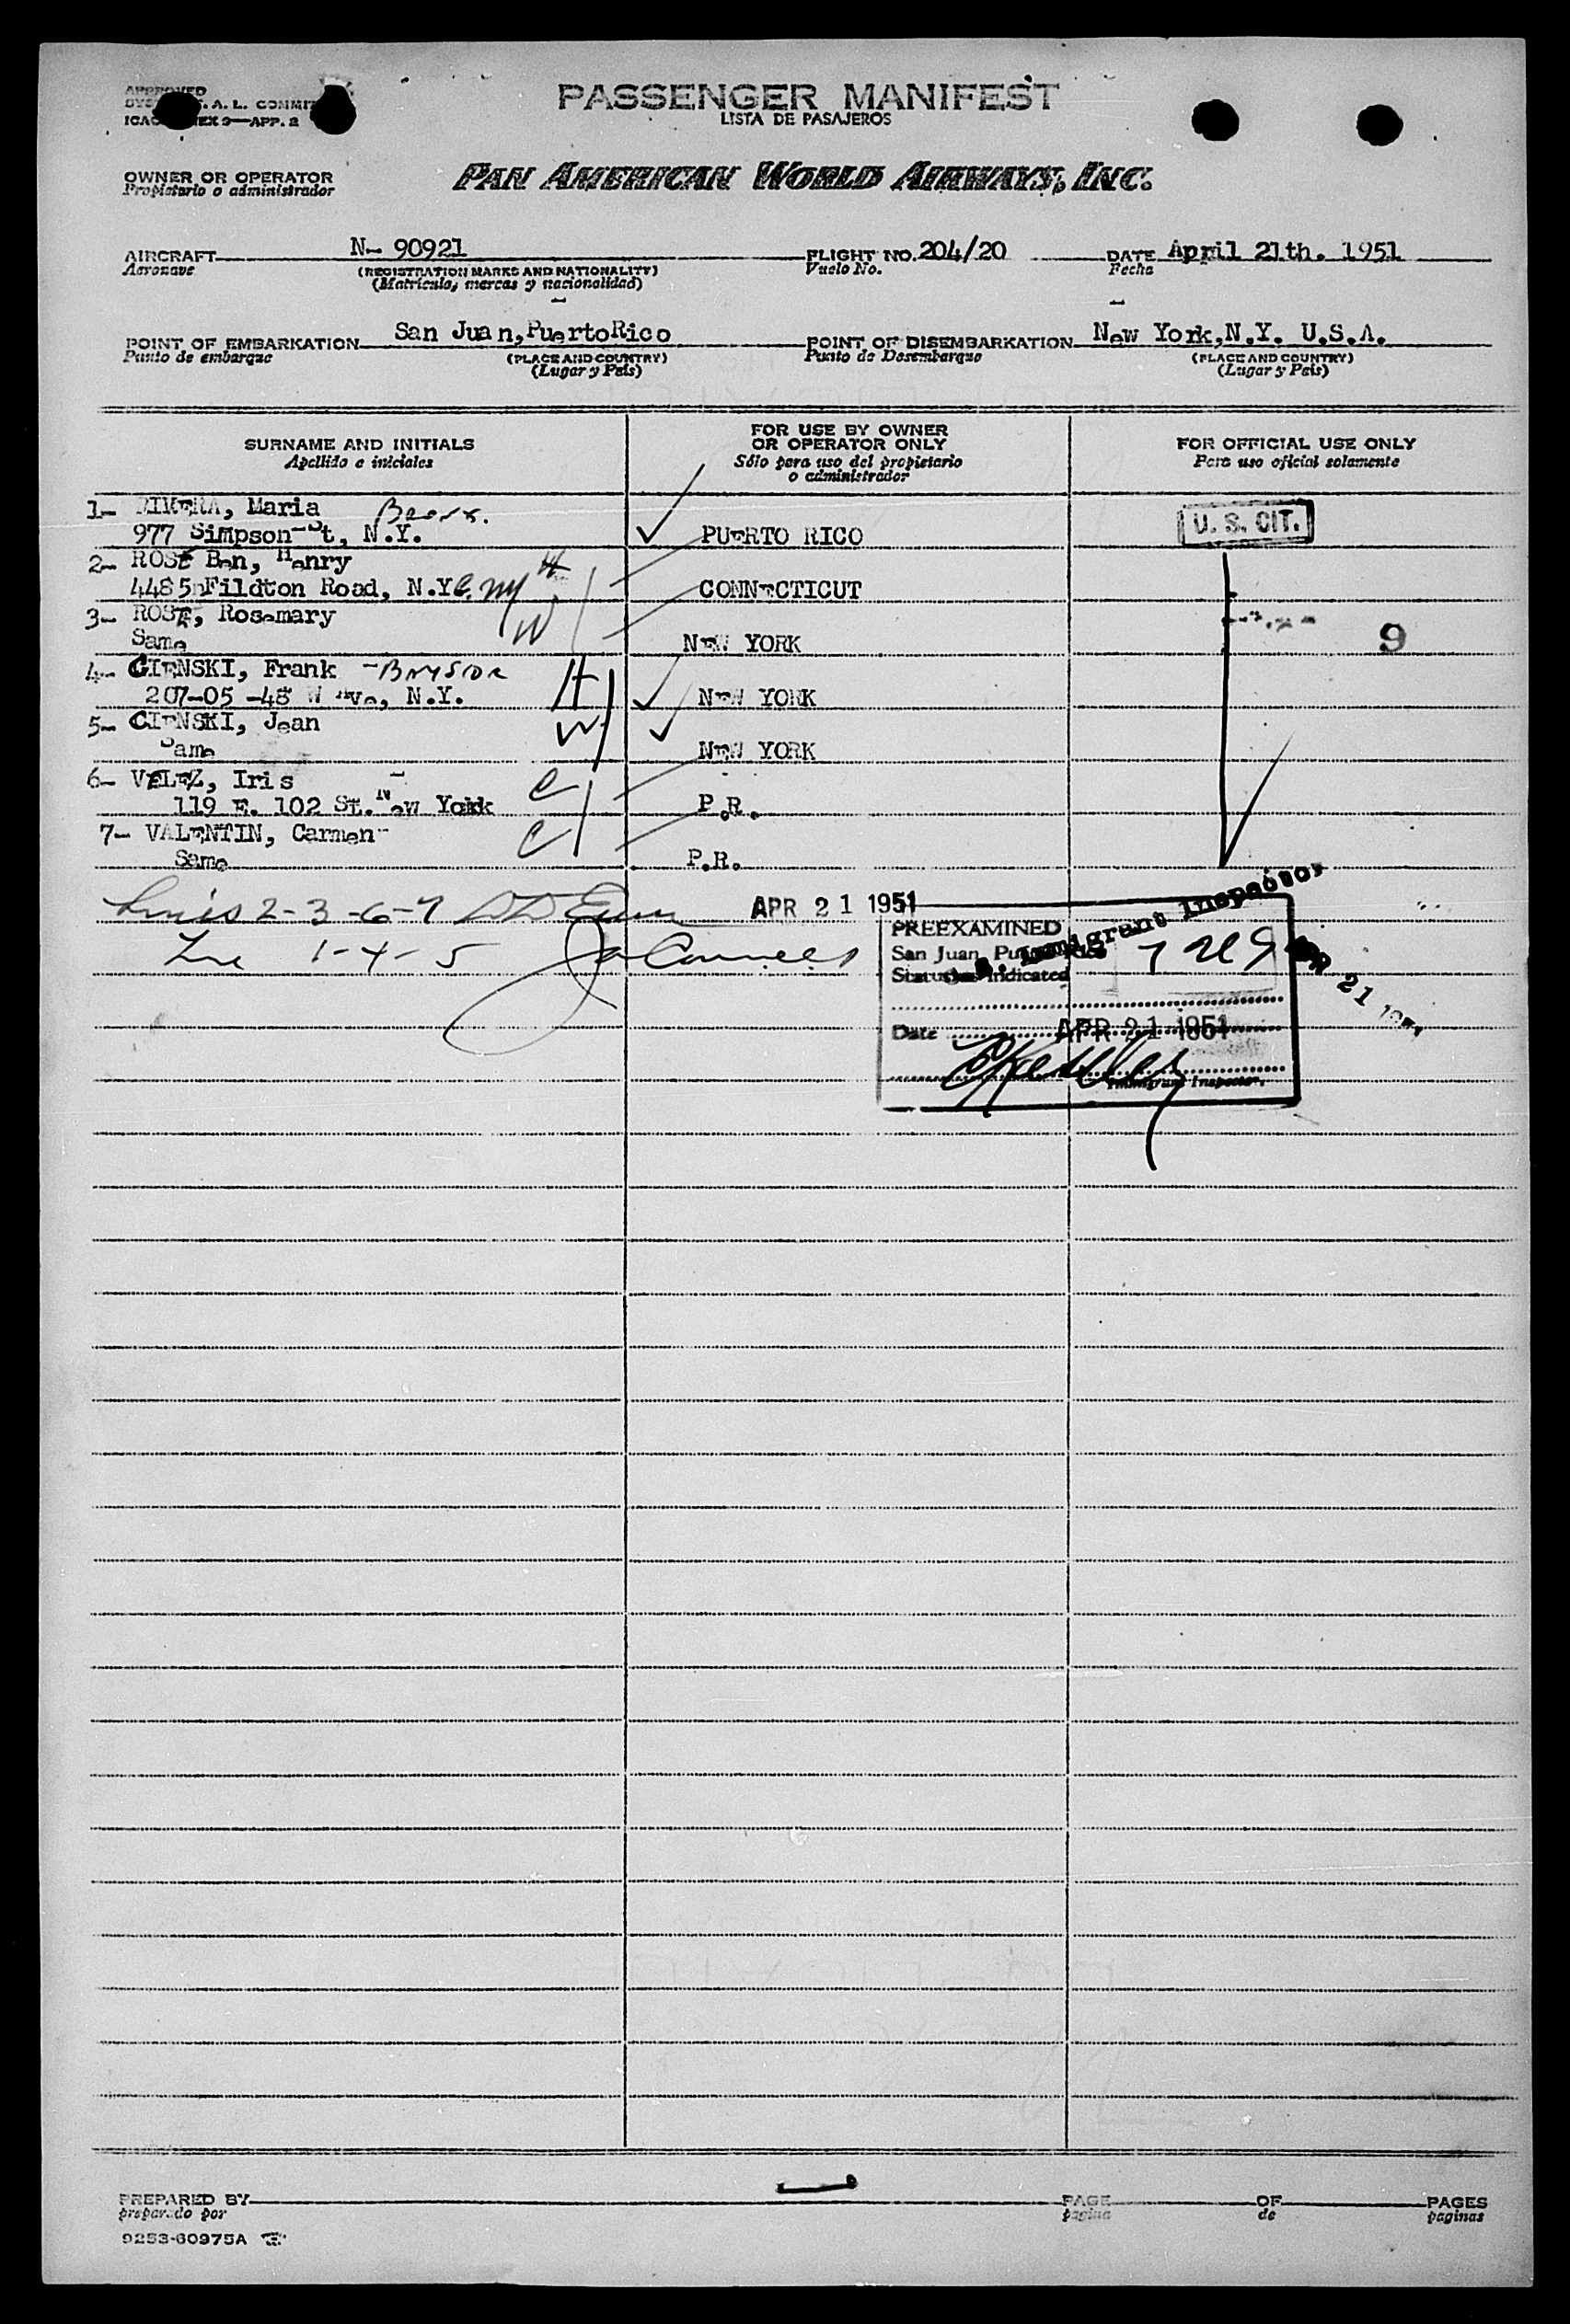 APPROVED
A. L. COMMIT
ICAO EX 9—APP. 2
PASSENGER MANIFEST
LISTA DE PASAJEROS
OWNER OR OPERATOR
Propietario o administrador
PAN AMERICAN WORLD AIRWAYS, INC.
AIRCRAFT N- 90921 FLIGHT NO. 204/20 DATE April 21th. 1951
Aeronave (REGISTRATION MARKS AND NATIONALITY) Vuelo No. Fecha
(Matrícula, marcas y nacionalidad)
POINT OF EMBARKATION San Juan,PuertoRico POINT OF DISEMBARKATION New York,N.Y. U.S.A.
Punto de embarque (PLACE AND COUNTRY) Punto de Desembarque (PLACE AND COUNTRY)
(Lugar y País) (Lugar y País)
SURNAME AND INITIALS FOR USE BY OWNER OR OPERATOR ONLY FOR OFFICIAL USE ONLY
Apellido e iniciales Sólo para uso del propietario o administrador Para uso oficial solamente
1- RIVERA, Maria Bronx.
977 Simpson St, N.Y. PUERTO RICO U. S. CIT.
2- ROSE Ben, Henry H
4485 Fildton Road, N.Y.C. NY CONNECTICUT
3- ROSE, Rosemary W
Same NEW YORK 9
4- CIENSKI, Frank -BAYSIDE H
207-05 -48 W Ave, N.Y. NEW YORK
5- CIENSKI, Jean W
Same NEW YORK
6- VELEZ, Iris C
119 E. 102 St. New York P.R.
7- VALENTIN, Carmen C
Same P.R.
2-3-6-7 APR 21 1951
1-4-5
Immigrant Inspector
PREEXAMINED
San Juan, Puerto Rico
Status as Indicated
APR 21 1951
Date APR 21 1951
Immigrant Inspector.
PREPARED BY PAGE OF PAGES
preparado por página de paginas
9253-60975A